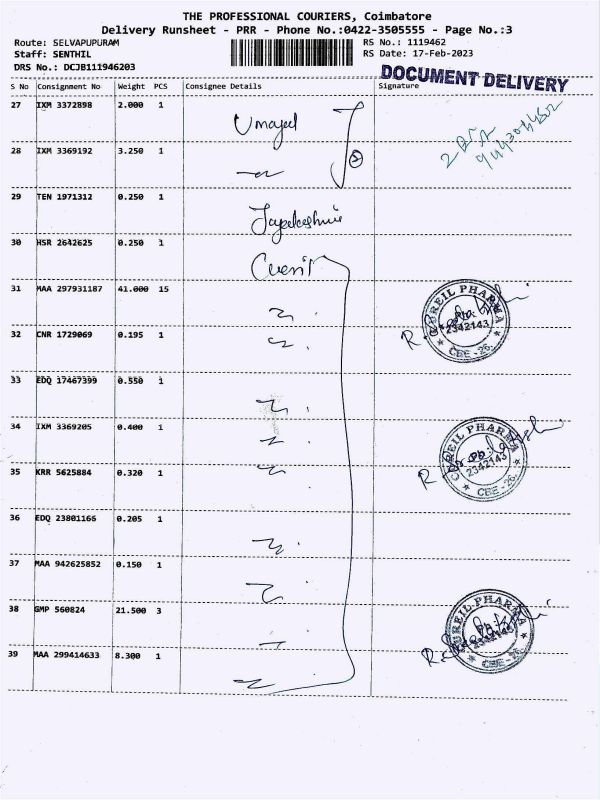 THE PROFESSIONAL COURIERS, Coimbatore
Delivery Runsheet - PRR - Phone No.:0422-3505555 - Page No.:3
Route: SELVAPUPURAM
RS No.: 1119462
Staff: SENTHIL
RS Date: 17-Feb-2023
DRS No.: DCJB111946203
DOCUMENT DELIVERY
S No Consignment No Weight PCS Consignee Details Signature
27 IXM 3372898 2.000 1
28 IXM 3369192 3.250 1
29 TEN 1971312 0.250 1
30 HSR 2642625 0.250 1
31 MAA 297931187 41.000 15
CUREIL PHARMA
2342143
CBE - 26.
32 CNR 1729069 0.195 1
33 EDQ 17467399 0.550 1
34 IXM 3369205 0.400 1
CUREIL PHARMA
2342143
CBE - 26.
35 KRR 5625884 0.320 1
36 EDQ 23801166 0.205 1
37 MAA 942625852 0.150 1
38 GMP 560824 21.500 3
CUREIL PHARMA
2342143
CBE - 26.
39 MAA 299414633 8.300 1